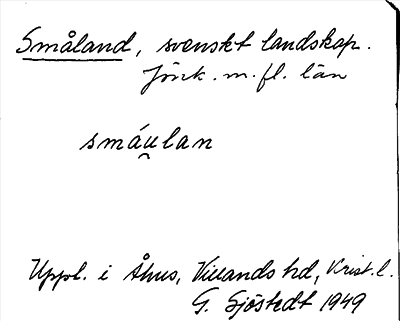 Småland, svenskt landskap.
Jönk. m. fl. län
smáu̯lan
Uppl. i Åhus, Villands hd, Krist. l.
G. Sjöstedt 1949